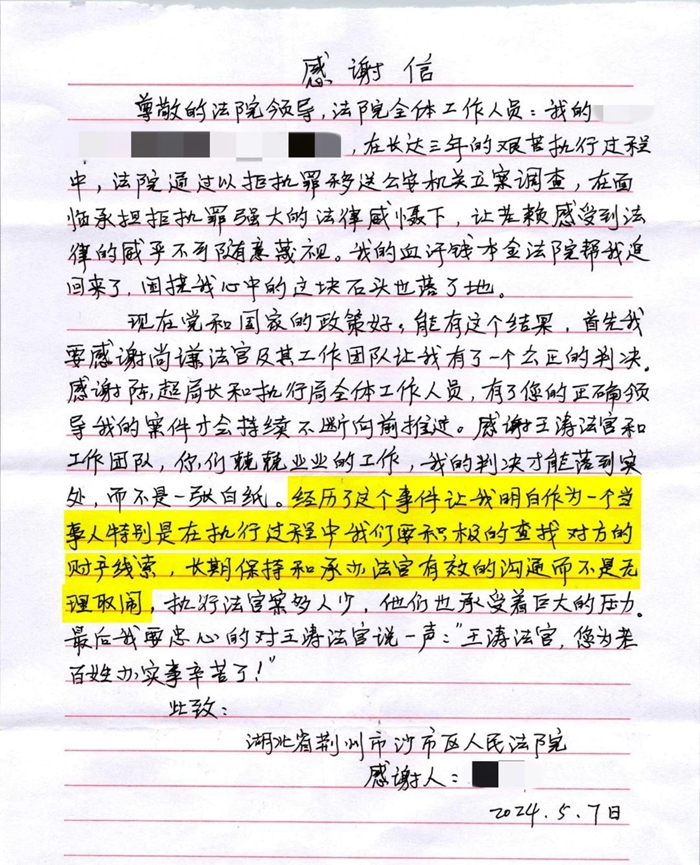 感谢信
尊敬的法院领导,法院全体工作人员:我的
,在长达三年的艰苦执行过程
中,法院通过以拒执罪移送公安机关立案调查,在面
临承担拒执罪强大的法律威慑下,让老赖感受到法
律的威严不可随意蔑视。我的血汗钱本金法院帮我追
回来了,间接我心中的这块石头也落了地。
现在党和国家的政策好。能有这个结果,首先我
要感谢尚谦法官及其工作团队让我有了一个公正的判决。
感谢陈超局长和执行局全体工作人员,有了您的正确领
导我的案件才会持续不断向前推进。感谢王涛法官和
工作团队,你们兢兢业业的工作,我的判决才能落到实
处,而不是一张白纸。经历了这个事件让我明白作为一个当
事人特别是在执行过程中我们要积极的查找对方的
财产线索,长期保持和承办法官有效的沟通而不是无
理取闹,执行法官案多人少,他们也承受着巨大的压力。
最后我要忠心的对王涛法官说一声:"王涛法官,您为老
百姓办实事辛苦了!"
此致:
湖北省荆州市沙市区人民法院
感谢人:
2024.5.7日